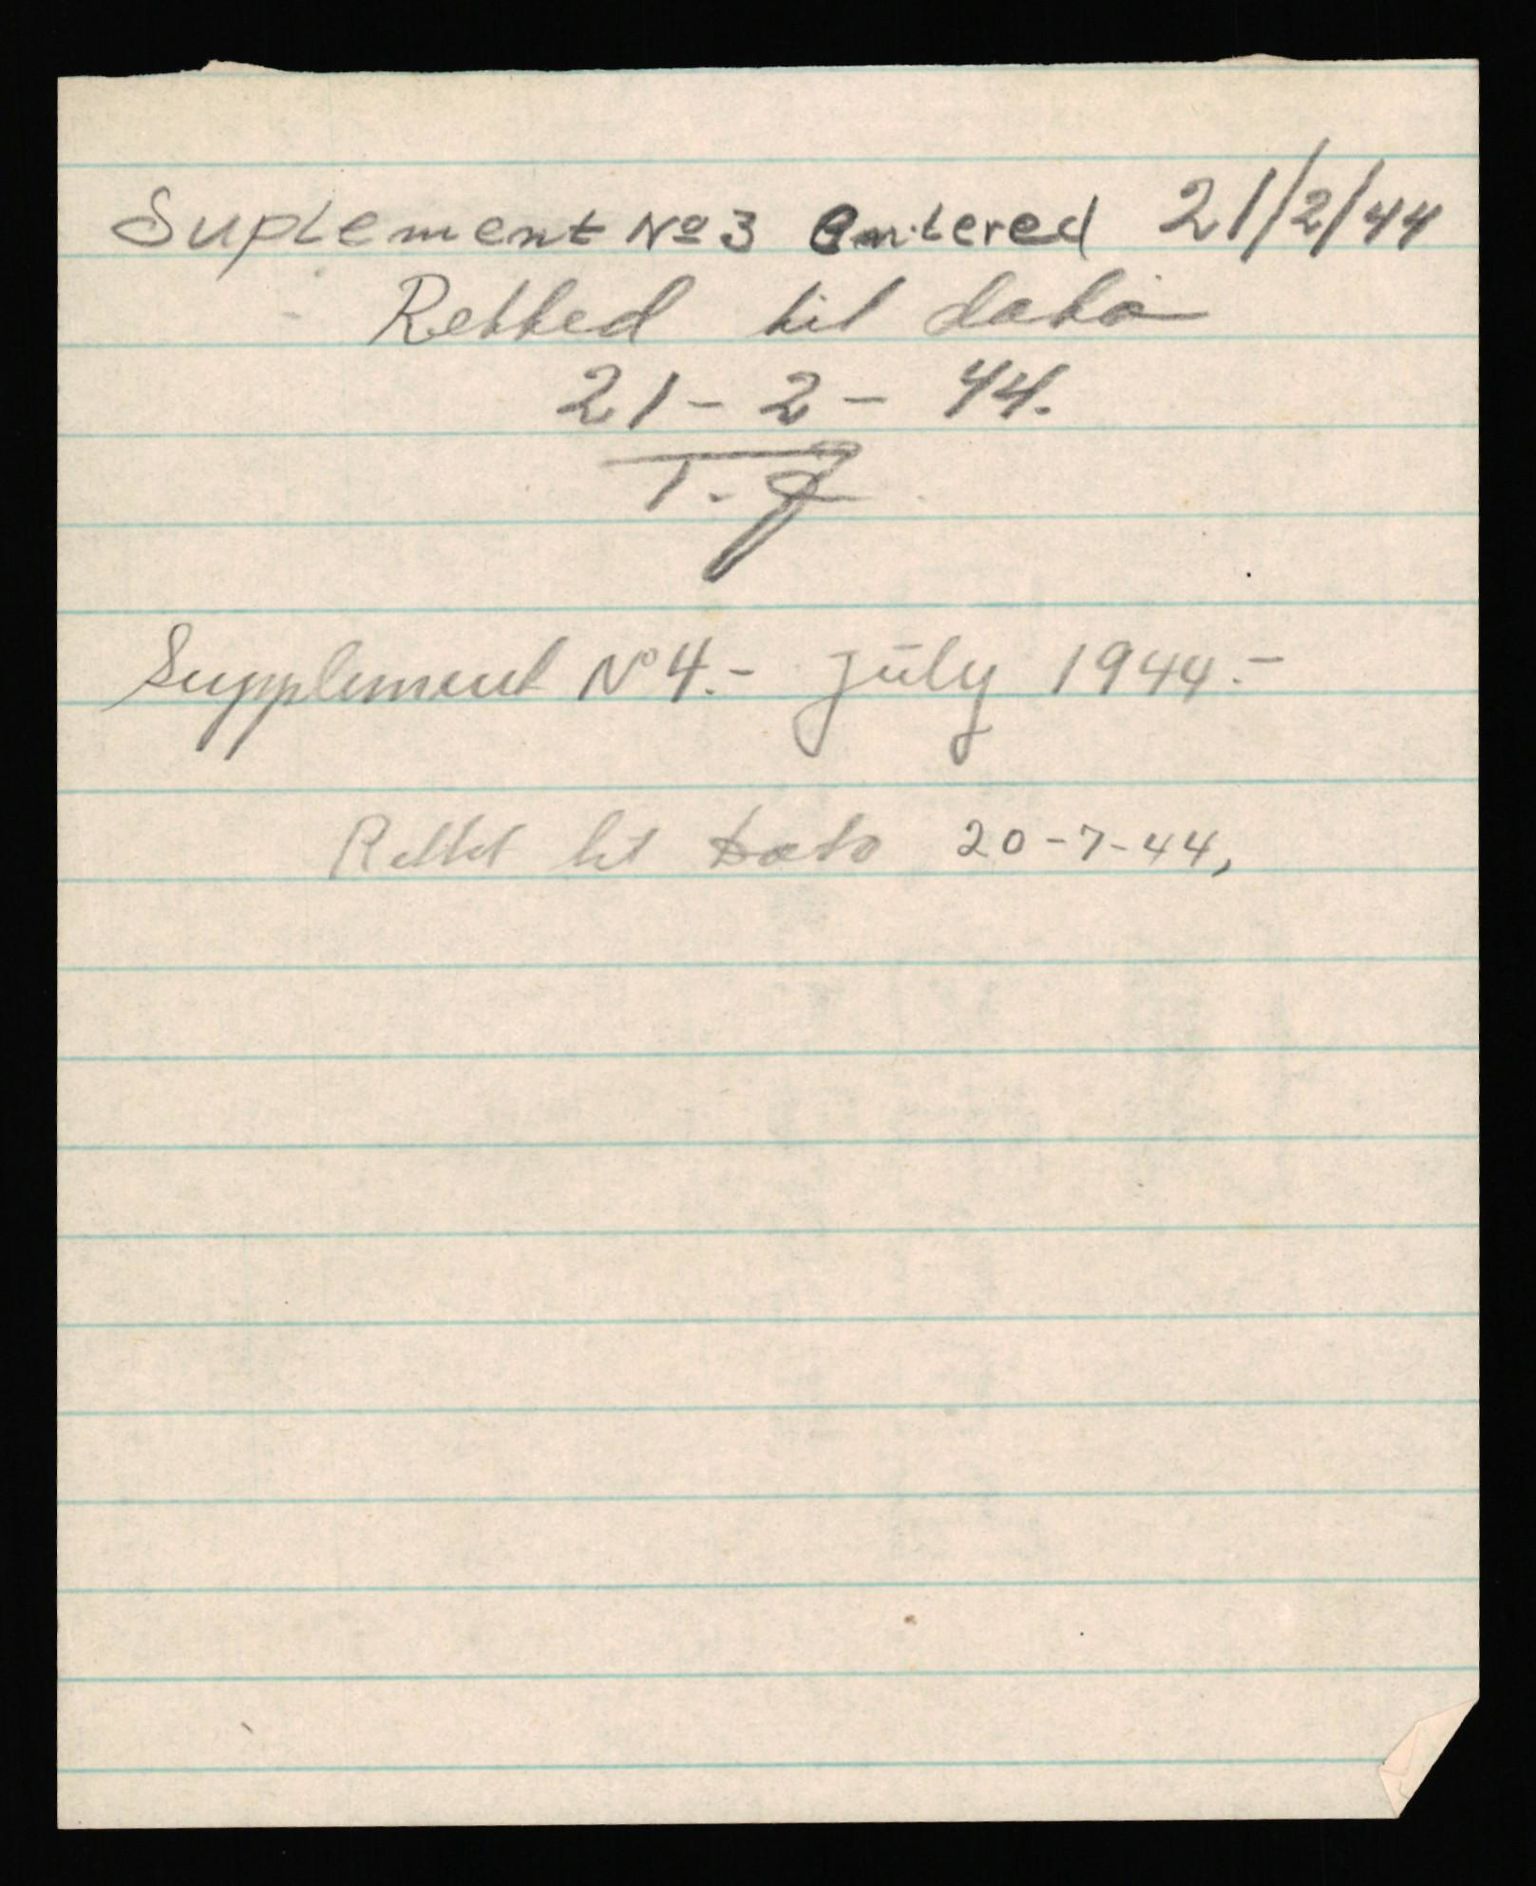 Suplement Nº 3 Entered 21/2/44
Retted til dato
21 - 2 - 44.
Supplement Nº 4. - July 1944. -
Rettet til Dato 20-7-44,